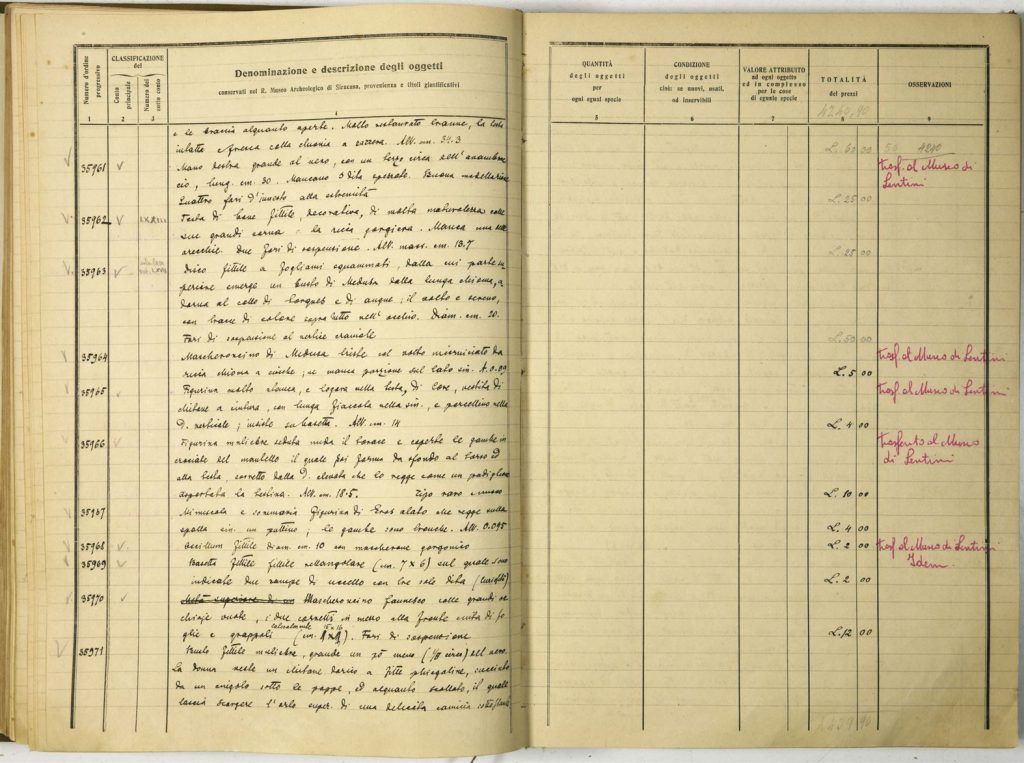 Numero d'ordine progressivo
CLASSIFICAZIONE del
Conto principale
Numero del sotto conto
Denominazione e descrizione degli oggetti
conservati nel R. Museo Archeologico di Siracusa, provenienza e titoli giustificativi
1 2 3 4
e le braccia alquanto aperte. Molto restaurato
intatta
35961 Mano destra grande al vero, con un terzo circa dell'avambrac
cio, lung. cm. 30. Mancano 3 dita spezzate. Buona modellazione
Quattro fori d'innesto alla estremità
35962 Testa di bove fittile, decorativa, di molta naturalezza colle
sue grandi corna e la ricca giogaia. Manca una delle
orecchie. Due fori di sospensione. Alt. mass. cm. 13.7
35963 Disco fittile a fogliami squammati, dalla cui parte su
periore emerge un busto di Medusa dalla lunga chioma, a
dorna al collo di torques e di angue; il volto è sereno,
con tracce di colore soprattutto nell'occhio. Diam. cm. 20.
Fori di sospensione al vertice craniale
35964 Mascheroncino di Medusa triste col volto incorniciato da
ricca chioma a ciocche; ne manca porzione sul lato sin. A. 0.09
35965 Figurina molto stanca, e logora nella testa, di Core, vestita di
chitone a cintura, con lunga fiaccola nella sin., e porcellino nella
d. verticale; insiste su basetta. Alt. cm. 14
35966 Figurina muliebre seduta nuda il torace e coperte le gambe in
crociate del mantello il quale poi forma da sfondo al torso ed
alla testa, sorretto dalla d. elevata che lo regge come un padiglione
asportata la testina. Alt. cm. 18.5. Tipo raro e nuovo
35967 Minuscola e sommaria figurina di Eros alato che regge sulla
spalla sin. un puttino; le gambe sono tronche. Alt. 0.095
35968 Oscillum fittile diam. cm. 10 con mascherone gorgonico
35969 Basetta fittile rettangolare (cm. 7 x 6) sul quale sono
indicate due zampe di uccello con tre sole dita
35970 Metà superiore di un Mascheroncino faunesco colle grandi or
chioje ovate, i due cornetti in mezzo alla fronte cinta di fo
glie e grappoli (cm. 15 x 16). Fori di sospensione
35971 Busto fittile muliebre, grande un
La donna veste un chitone dorico a fitte phiegoline, succinto
da un cingolo sotto le poppe, ed alquanto scollato, il quale
lascia scorgere l'orlo super. di una delicata camicia
QUANTITÀ degli oggetti per ogni egual specie
CONDIZIONE degli oggetti cioè: se nuovi, usati, od inservibili
VALORE ATTRIBUITO ad ogni oggetto ed in complesso per le cose di eguale specie
TOTALITÀ dei prezzi
OSSERVAZIONI
5 6 7 8 9
L. 60 00
trasf. al Museo di
Lentini
L. 25 00
L. 25 00
L. 50 00
trasf. al Museo di Lentini
L. 5 00
trasf. al Museo di Lentini
L. 4 00
trasferito al Museo
di Lentini
L. 10 00
L. 4 00
L. 2 00 trasf. al Museo di Lentini
Idem.
L. 2 00
L. 12 00